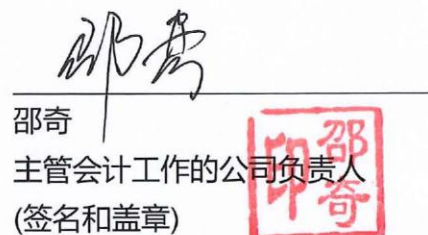 邵奇
邵奇
主管会计工作的公司负责人
(签名和盖章)
邵奇印